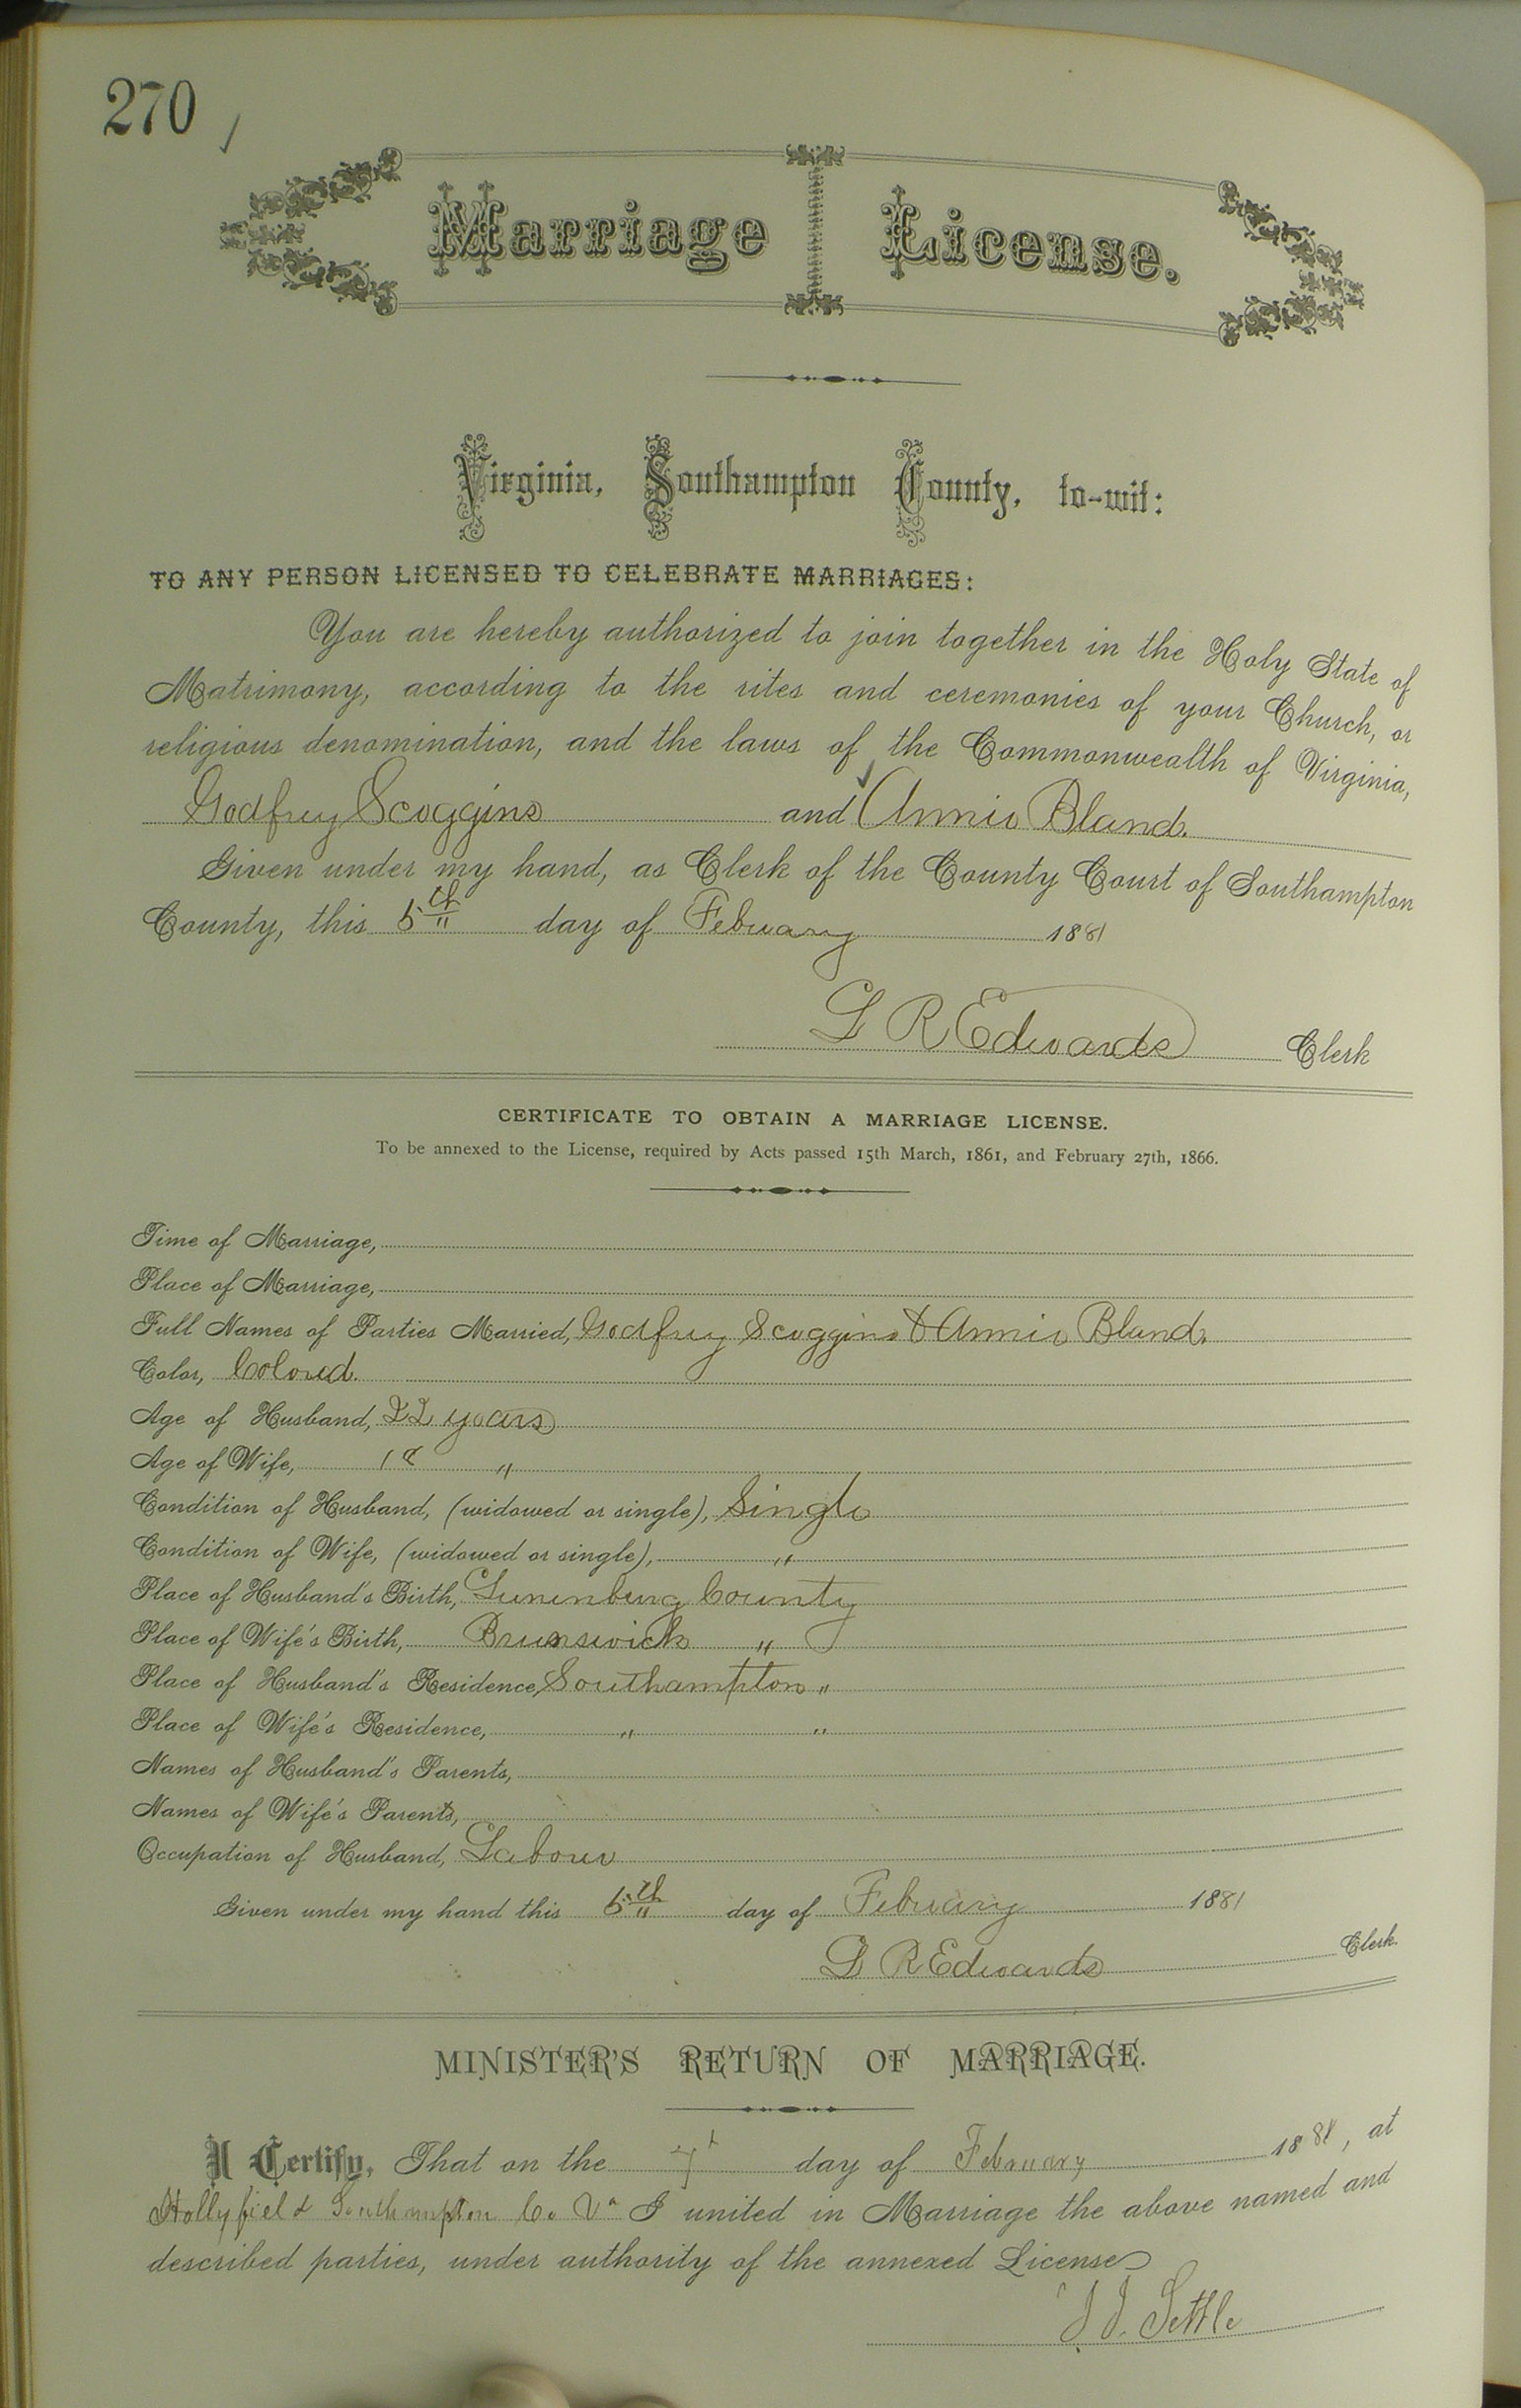 270
Marriage License.
Virginia, Southampton County, to-wit:
TO ANY PERSON LICENSED TO CELEBRATE MARRIAGES:
You are hereby authorized to join together in the Holy State of
Matrimony, according to the rites and ceremonies of your Church, or
religious denomination, and the laws of the Commonwealth of Virginia,
Godfrey Scoggins and Annie Bland.
Given under my hand, as Clerk of the County Court of Southampton
County, this 5th day of February 1881
L R Edwards Clerk
CERTIFICATE TO OBTAIN A MARRIAGE LICENSE.
To be annexed to the License, required by Acts passed 15th March, 1861, and February 27th, 1866.
Time of Marriage,
Place of Marriage,
Full Names of Parties Married, Godfrey Scoggins & Annie Bland.
Color, Colored.
Age of Husband, 22 years
Age of Wife, 18 "
Condition of Husband, (widowed or single), Single
Condition of Wife, (widowed or single), "
Place of Husband's Birth, Lunenburg County
Place of Wife's Birth, Brunswick "
Place of Husband's Residence, Southampton "
Place of Wife's Residence, " "
Names of Husband's Parents,
Names of Wife's Parents,
Occupation of Husband, Laborer
Given under my hand this 5th day of February 1881
L R Edwards Clerk.
MINISTER'S RETURN OF MARRIAGE.
I Certify, That on the 7th day of February 1881, at
Hollyfield Southampton Co Va I united in Marriage the above named and
described parties, under authority of the annexed License
J J. Settle